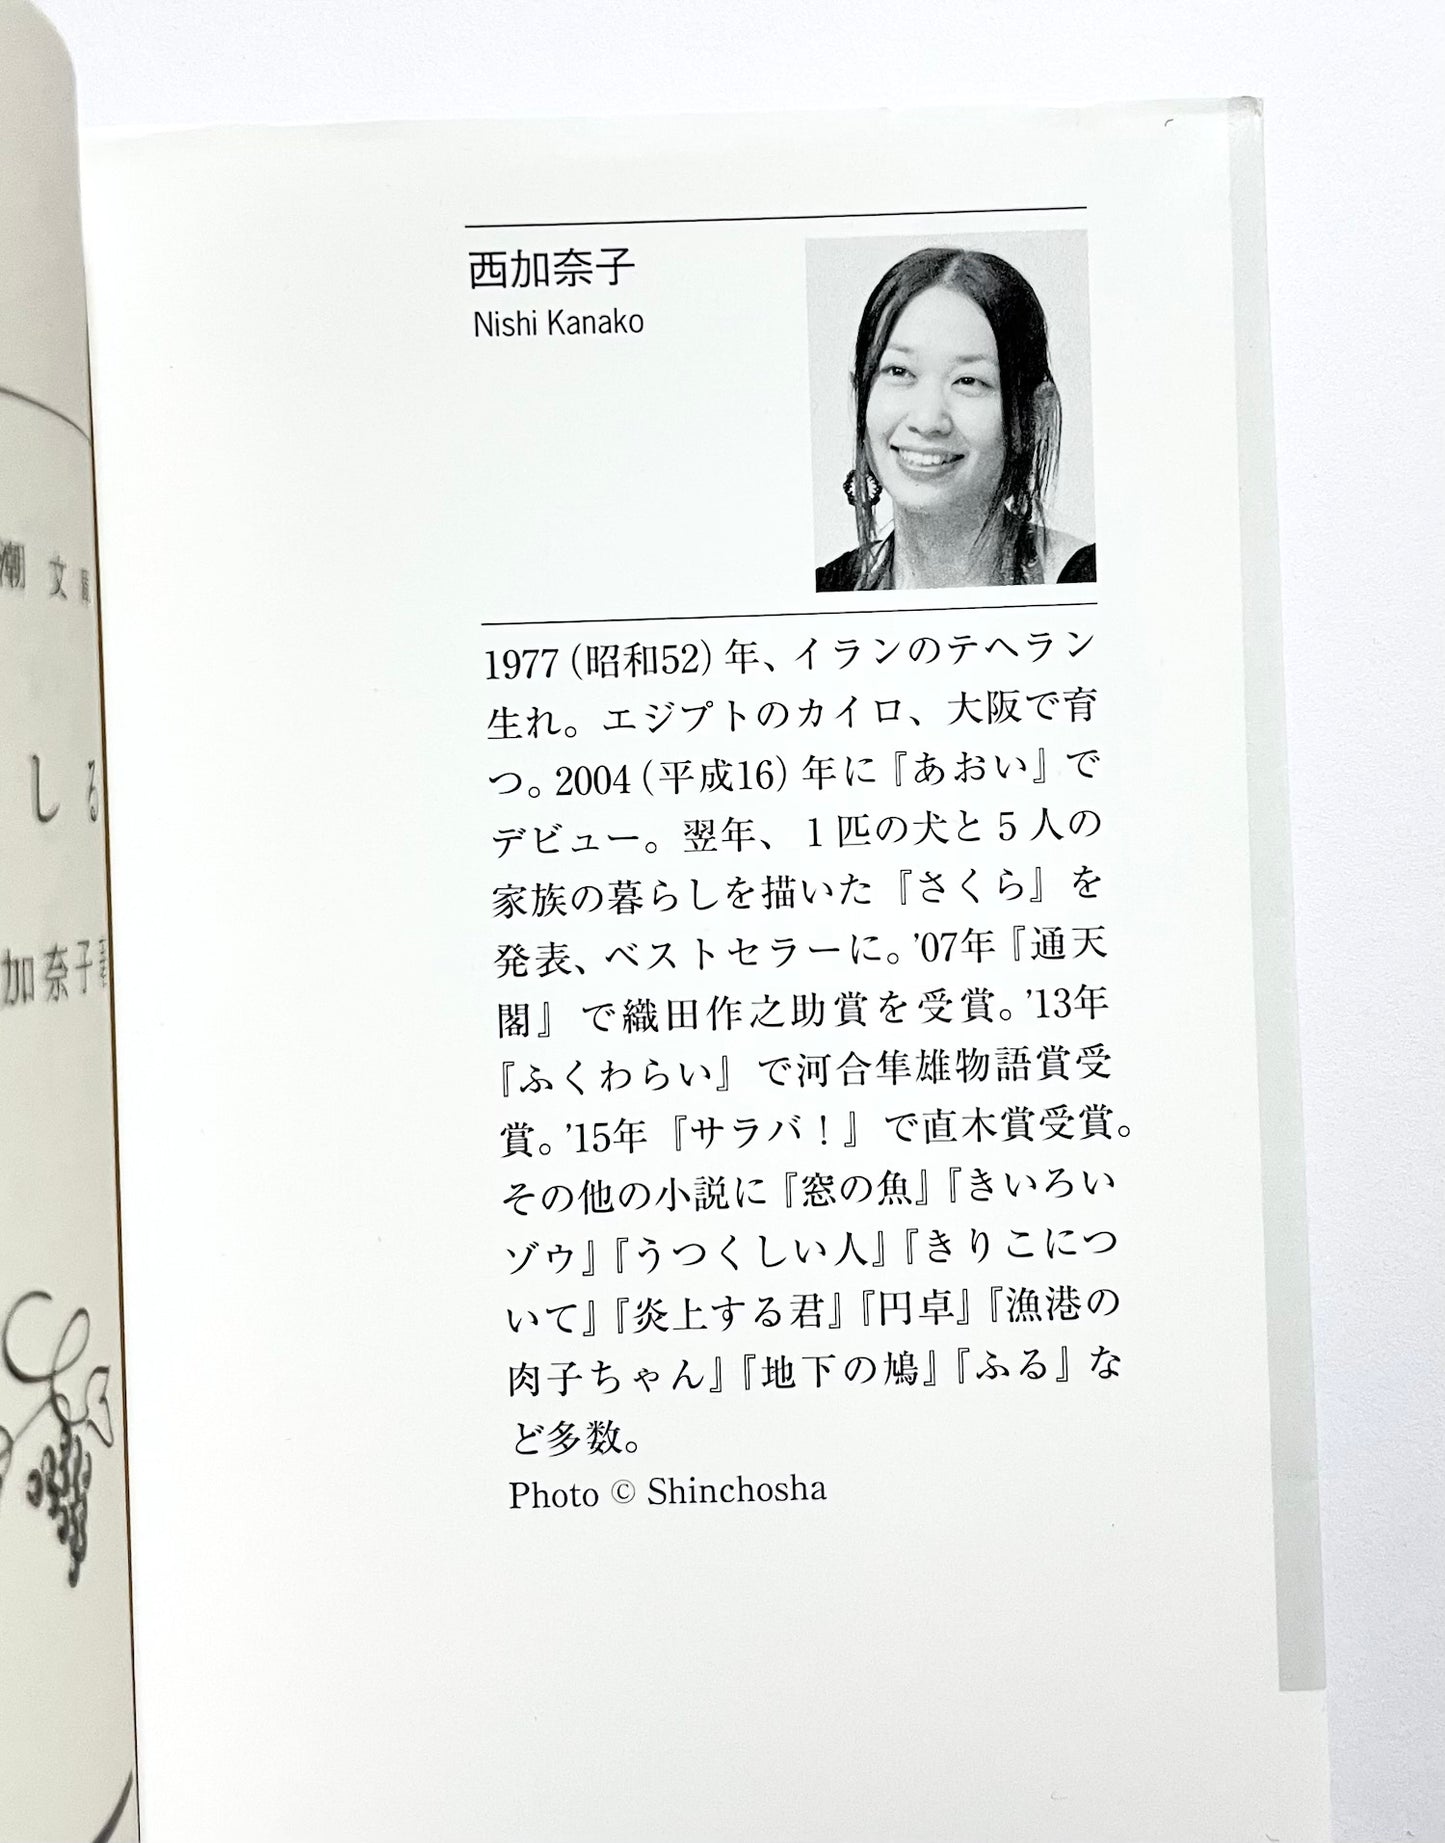 西加奈子
Nishi Kanako
1977(昭和52)年、イランのテヘラン
生れ。エジプトのカイロ、大阪で育
つ。2004(平成16)年に『あおい』で
デビュー。翌年、1匹の犬と5人の
家族の暮らしを描いた『さくら』を
発表、ベストセラーに。’07年『通天
閣』で織田作之助賞を受賞。’13年
『ふくわらい』で河合隼雄物語賞受
賞。’15年『サラバ!』で直木賞受賞。
その他の小説に『窓の魚』『きいろい
ゾウ』『うつくしい人』『きりこにつ
いて』『炎上する君』『円卓』『漁港の
肉子ちゃん』『地下の鳩』『ふる』な
ど多数。
Photo © Shinchosha
潮文庫
しる
加奈子著